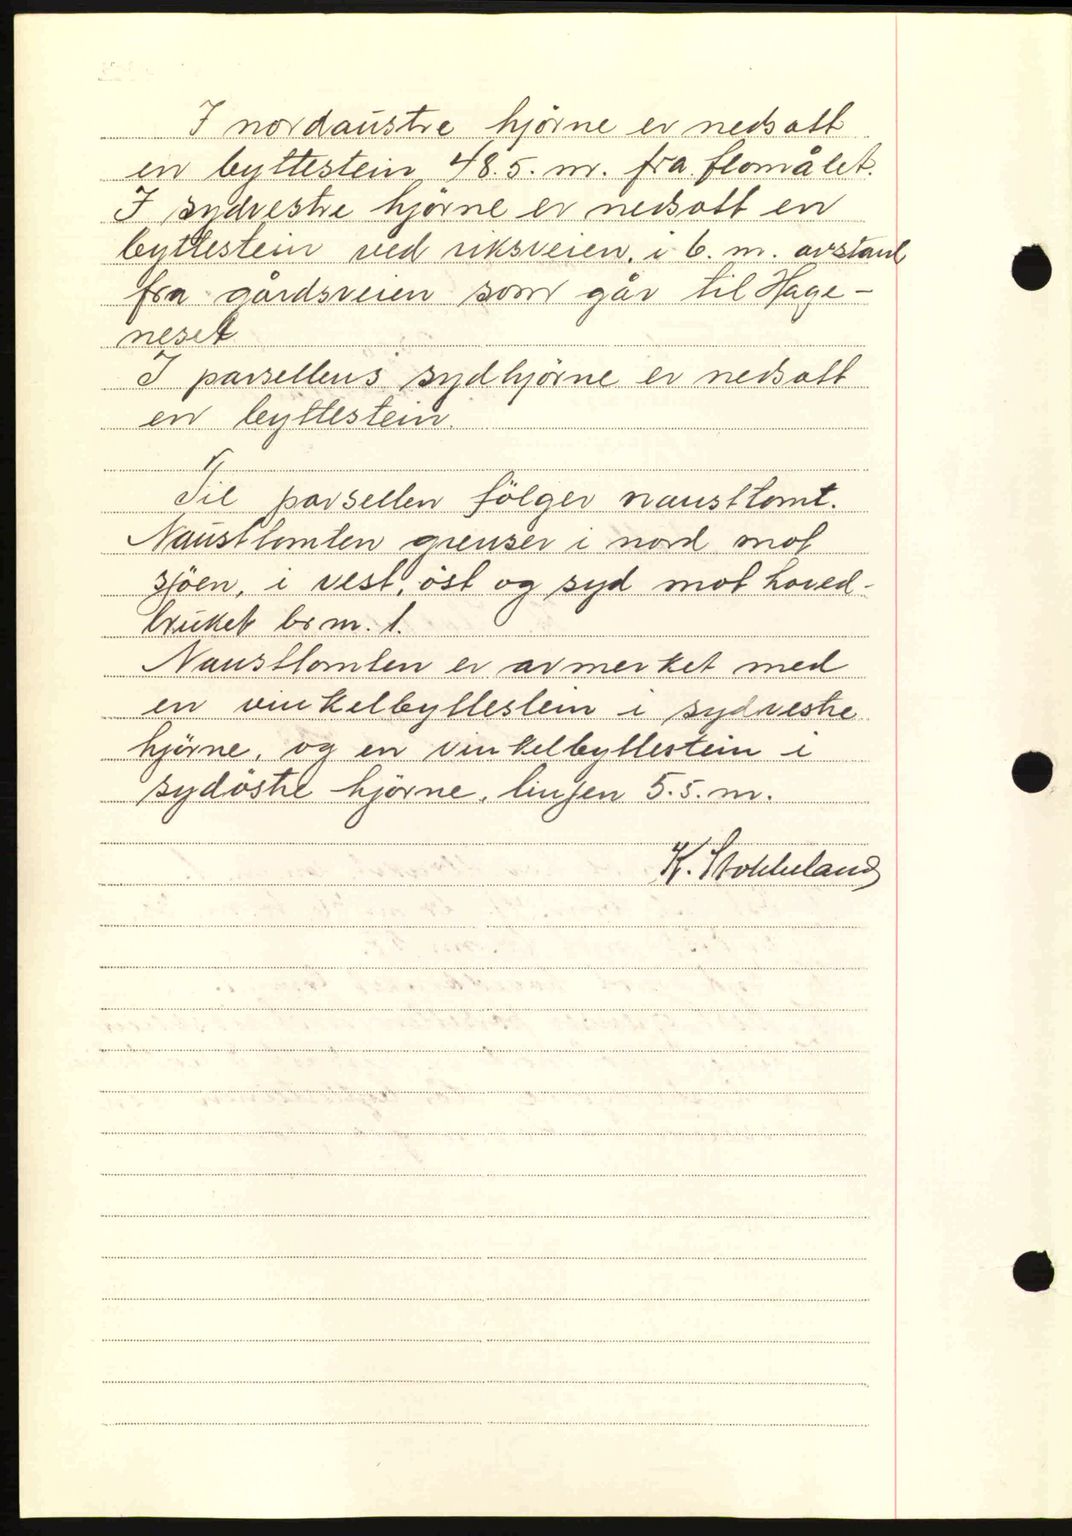 I nordaustre hjörne er nedsatt
en byttestein 48.5. m. fra flomålet.
I sydvestre hjörne er nedsatt en
byttestein ved riksveien, i 6. m. avstand
fra gårdsveien som går til Hage-
neset
I parsellens sydhjörne er nedsatt
en byttestein.
Til parsellen fölger nausttomt.
Nausttomten grenser i nord mot
sjöen, i vest, öst og syd mot hoved-
bruket br m. 1.
Nausttomten er avmerket med
en vinkelbyttestein i sydvestre
hjörne, og en vinkelbyttestein i
sydöstre hjörne, linjen 5.5. m.
K. Stokkeland